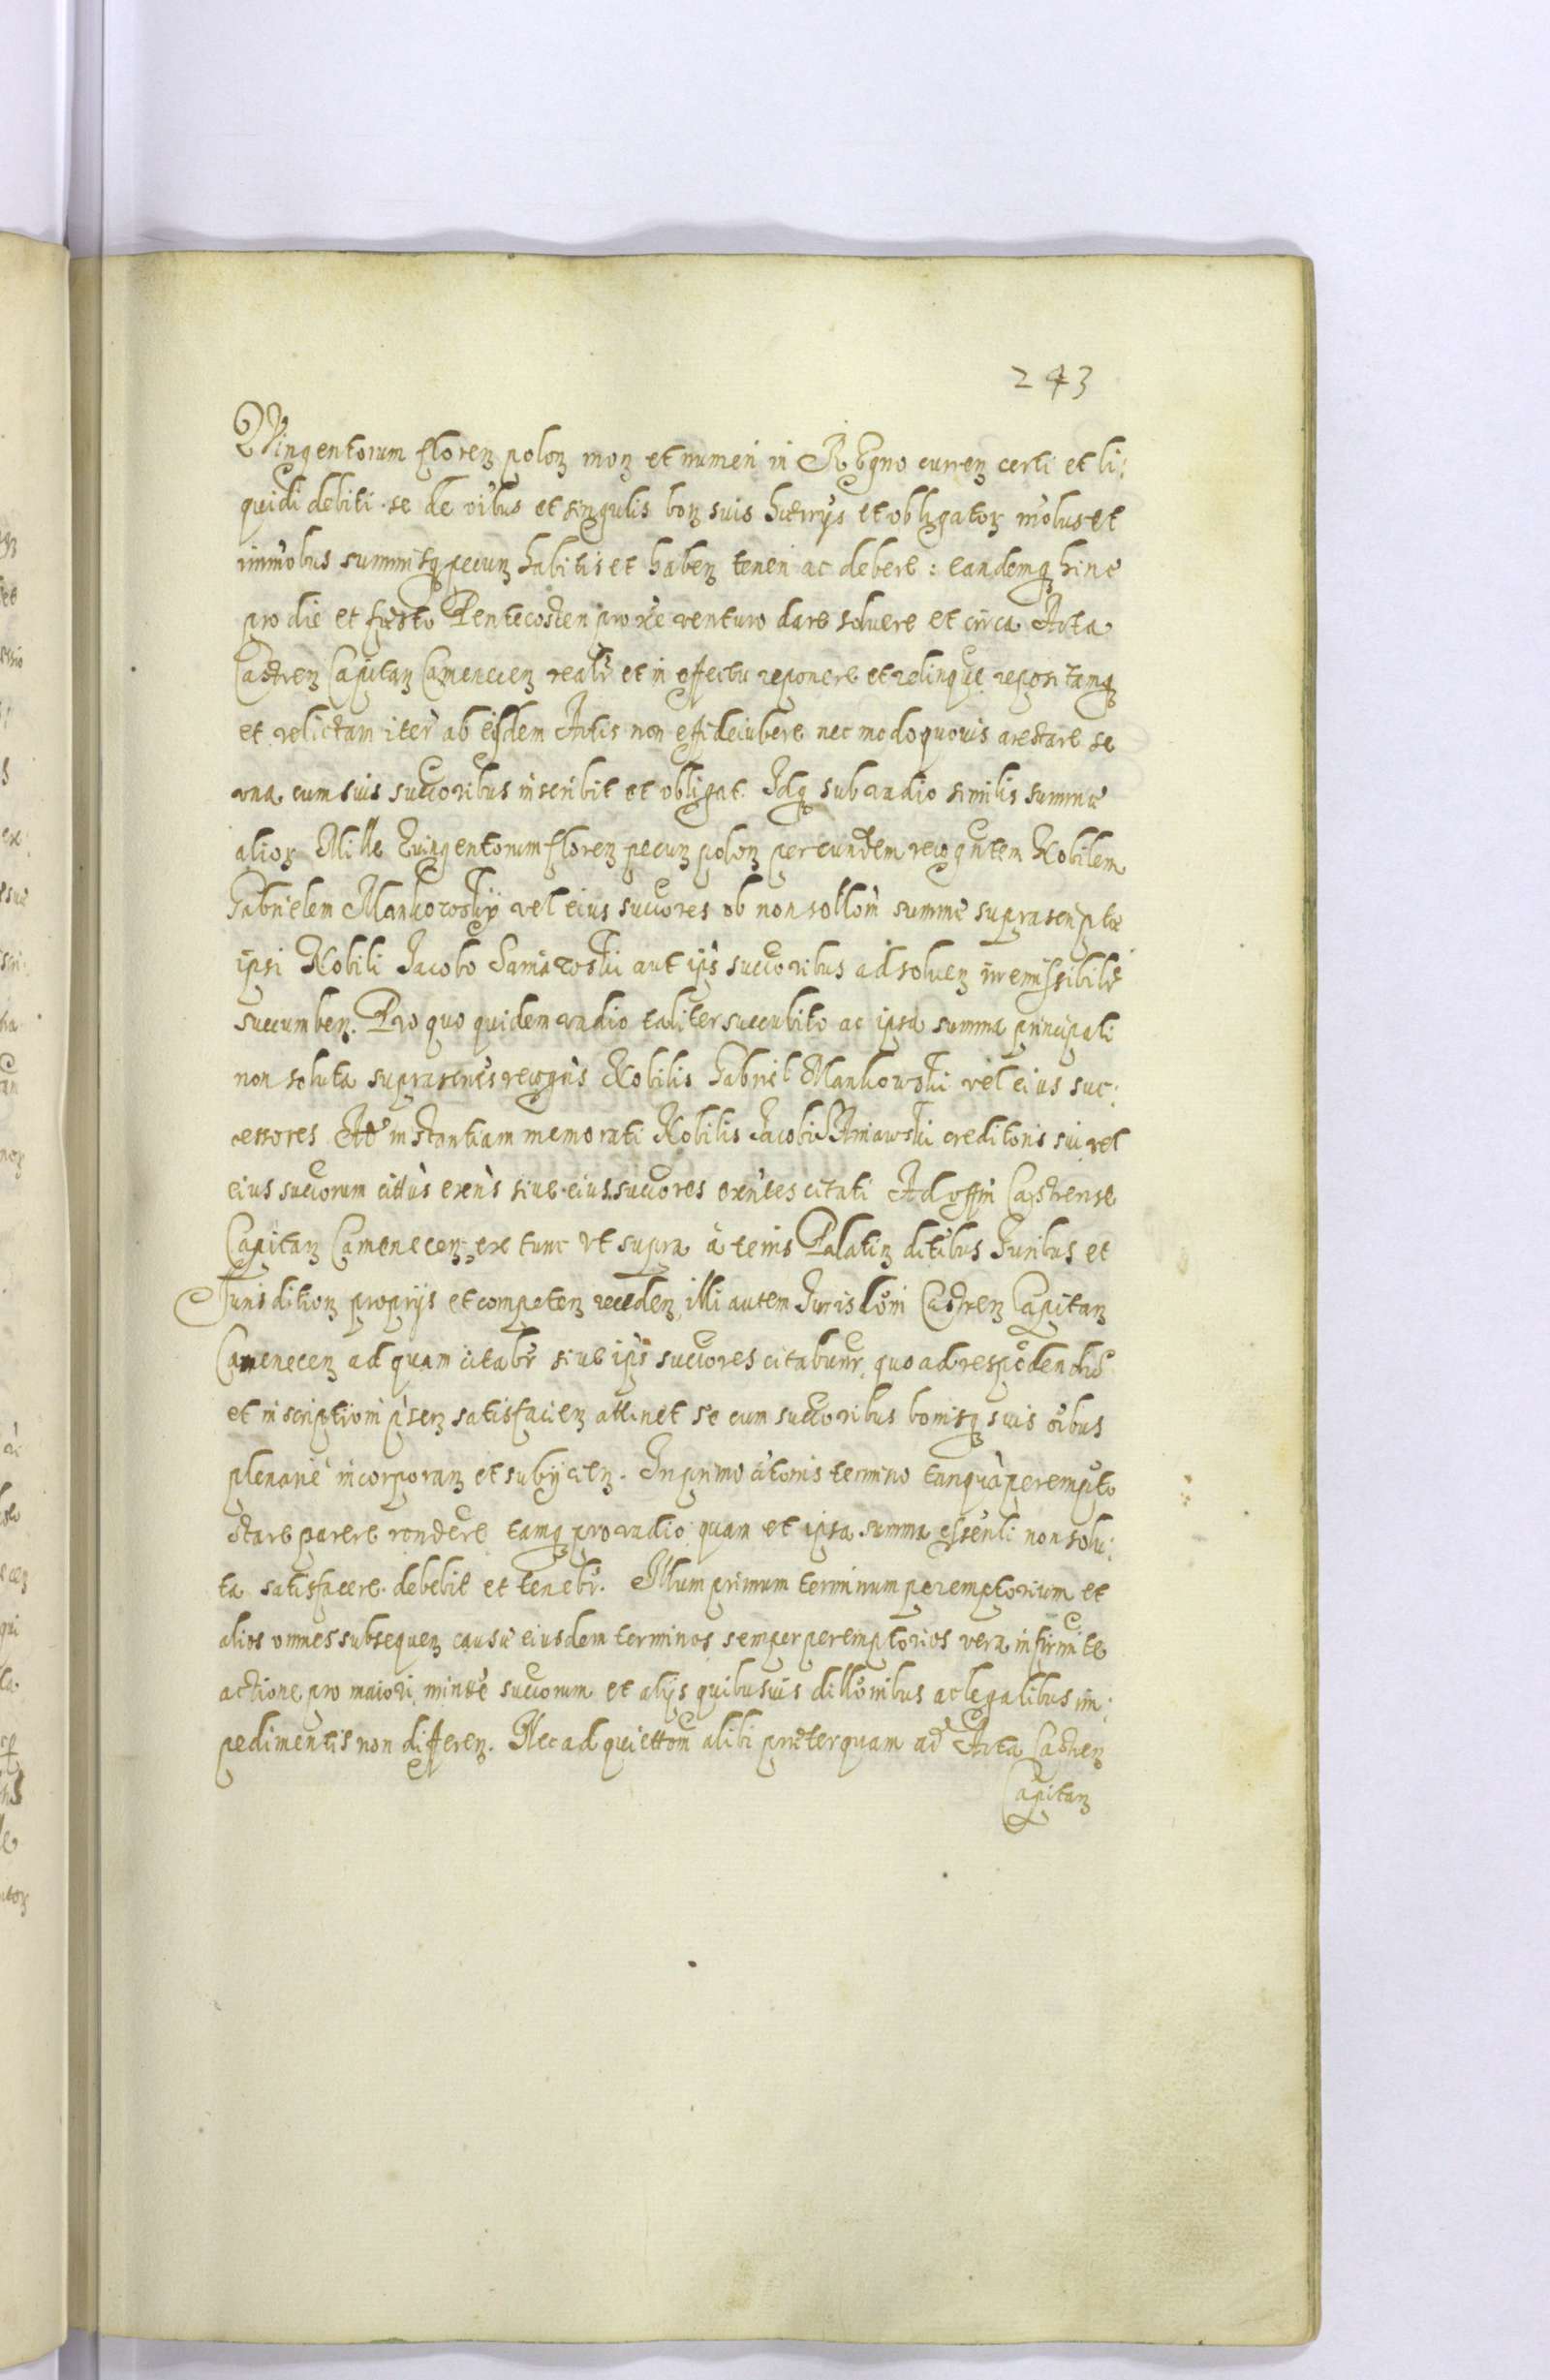 243
QVingentorum florenꝫ polonꝫ monꝫ et numeri in REgno currenꝫ certi et li:
quidi debiti se de oibus et singulis bonꝫ suis hærrijs et obligatorꝫ mobus et
immobus summisqꝫ pecunꝫ habitis et habenꝫ teneri ac debere: eandemqꝫ hinc
pro die et festo Pentecosten proxe venturo dare soluere et circa Acta
Castrenꝫ Capitanꝫ Camenecenꝫ realr et in effectu reponere et relinquere repositamqꝫ
et relictam iter ab eisdem Actis non efideiubere nec modo quouis arestare se
vna cum suis succoribus inscribit et obligat. Idqꝫ sub vadio similis summæ
aliorꝫ Mille Quingentorum florenꝫ pecunꝫ polonꝫ per eundem recogntem Nobilem
Gabrielem Mankowskÿ vel eius succores ob non solloni summæ suprascriptæ
ipsi Nobili Jacobo Saniawski aut ips succoribus ad soluenꝫ irremissibilr
succumbenꝫ. Pro quo quidem vadio taliter succubito ac ipsa summa principali
non soluta suprascrus recogns Nobilis Gabriel Mankowski vel eius suc:
cessores Ad instantiam memorati Nobilis Jacobi SAniawski creditoris sui vel
eius succorum cittus exens siue eius succores exentes citati Ad offm Castrense
Capitanꝫ Camenecenꝫ, ex tunc Vt supra à terris Palatinꝫ ditibus Juribus et
Jurisditionꝫ proprijs et competenꝫ recedenꝫ illi autem Jurisdoni Castrenꝫ Capitanꝫ
Camenecenꝫ ad quam citabr siue ips succores citabunr quo ad respodendu
et inscriptioni psenꝫ satisfacienꝫ attinet se cum succoribus bonisqꝫ suis oibus
plenarie incorporanꝫ et subijcienꝫ. In primo citonis termino tanqua perempto
stare parere rondere tamqꝫ pro vadio quam et ipsa summa essenli non solu:
ta satisfacere debebit et tenebr. Illum primum terminum peremptorium et
alios omnes subsequenꝫ causæ eiusdem terminos semper peremptorios vera infirmite
actione pro maiori, minræ succorum et alijs quibusuis dillonibus ac legalibus im:
pedimentis non differenꝫ. Nec ad quiettom alibi præterquam ad Acta Castrenꝫ
Capitanꝫ